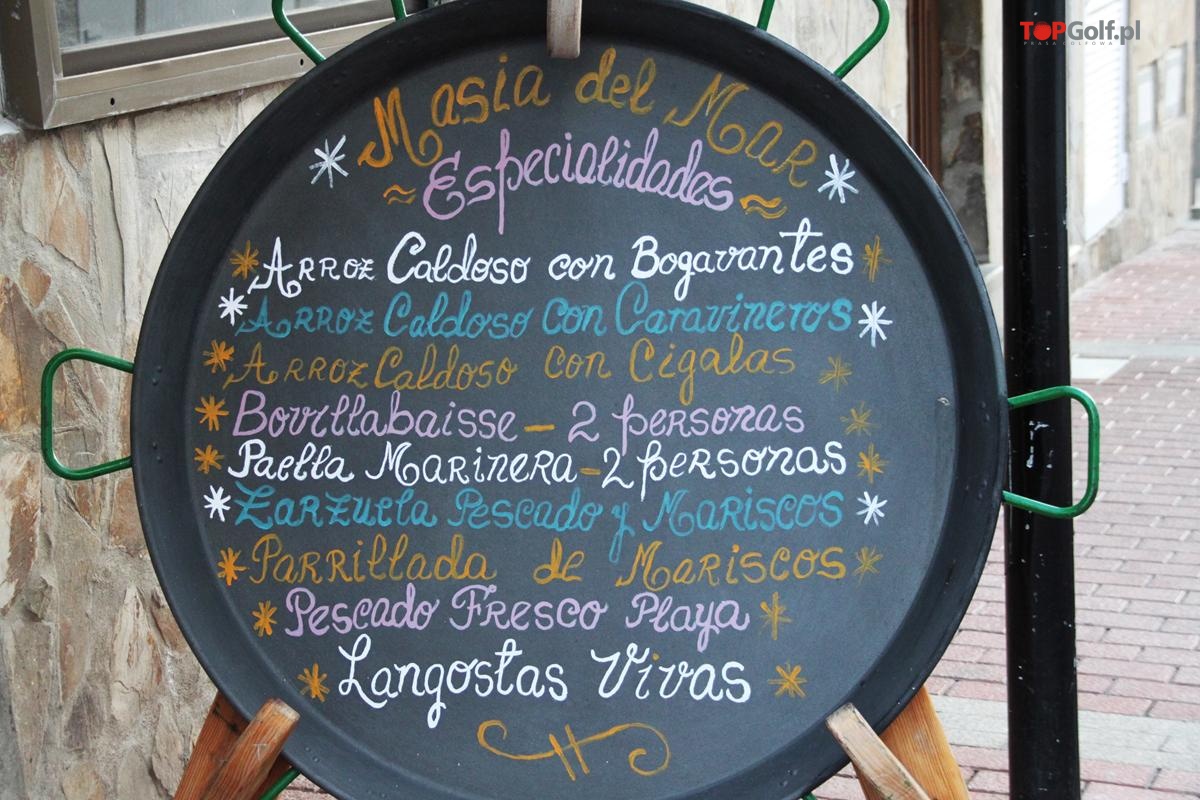 TOPGolf.pl
PRASA GOLFOWA
Masia del Mar
Especialidades
Arroz Caldoso con Bogavantes
Arroz Caldoso con Caravineros
Arroz Caldoso con Cigalas
Bovillabaisse - 2 personas
Paella Marinera - 2 personas
Zarzuela Pescado y Mariscos
Parrillada de Mariscos
Pescado Fresco Playa
Langostas Vivas